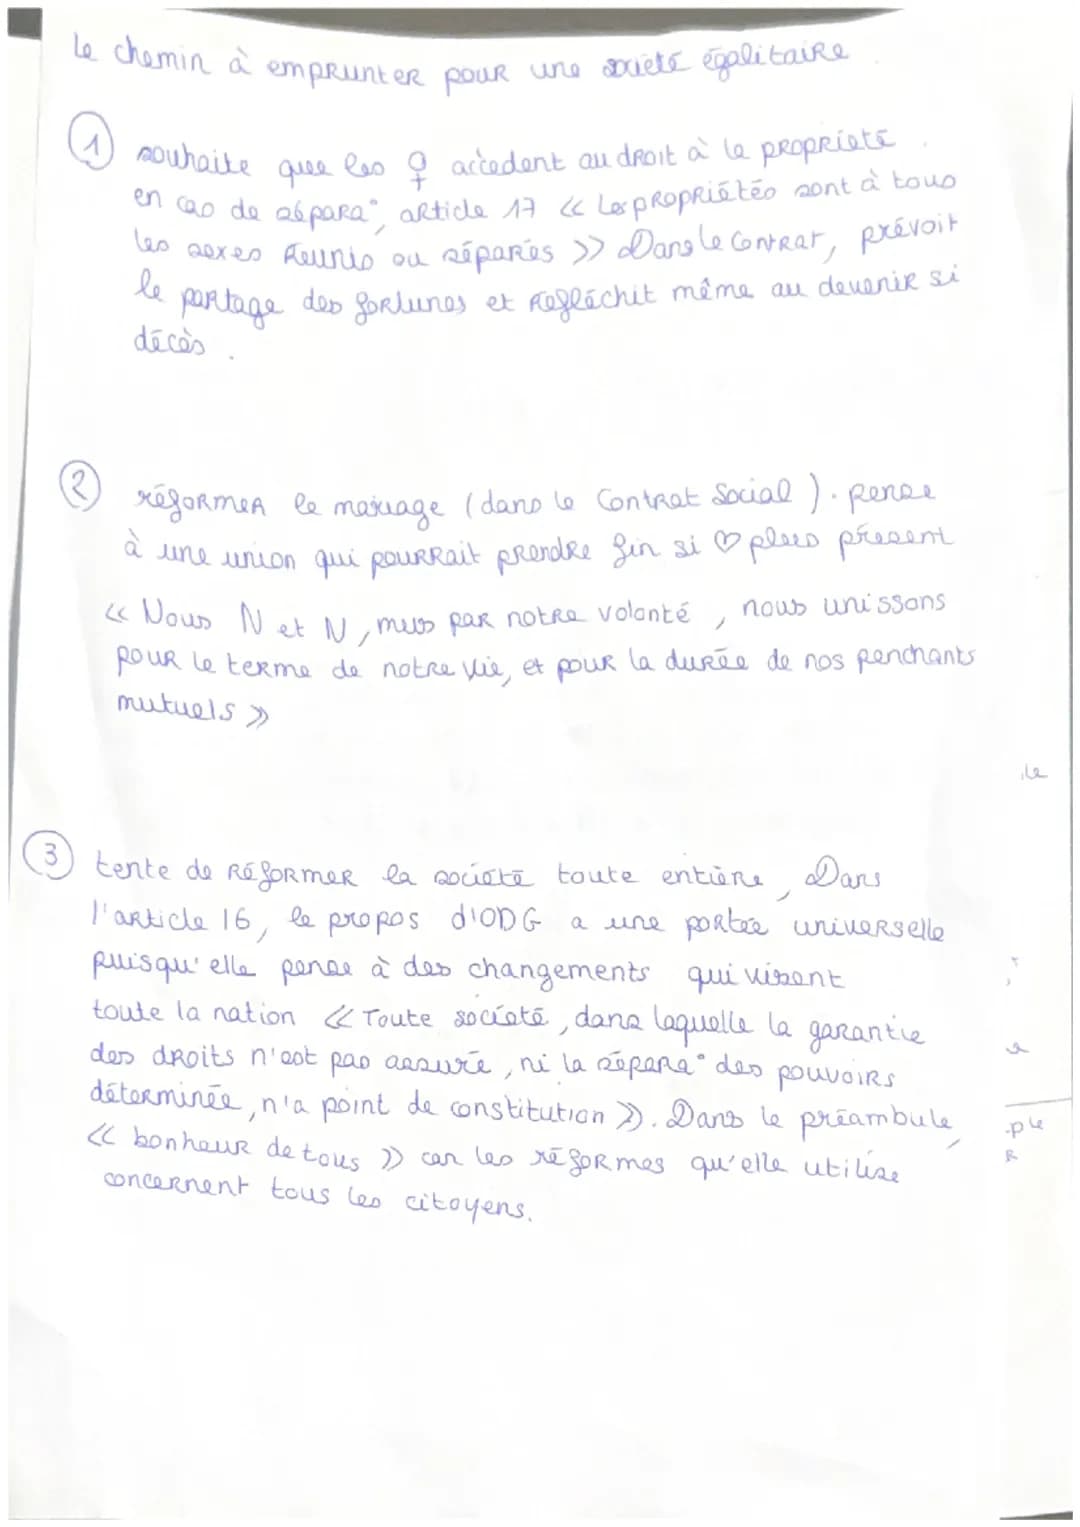 le chemin à emprunter pour une société égalitaire
① souhaite que les ♀ accèdent au droit à la propriété
en cas de sépara°, article 17 « Les propriétés sont à tous
les sexes réunis ou séparés » Dans le contrat, prévoit
le partage des fortunes et réfléchit même au devenir si
décès.
② réformer le mariage (dans le Contrat Social). pense
à une union qui pourrait prendre fin si ♡ plus présent
« Nous N et N, mus par notre volonté, nous unissons
pour le terme de notre vie, et pour la durée de nos penchants
mutuels »
le
③ tente de réformer la société toute entière, Dans
l'article 16, le propos d'ODG a une portée universelle
puisqu'elle pense à des changements qui visent
toute la nation « Toute société, dans laquelle la garantie
des droits n'est pas assuré, ni la sépara° des pouvoirs
déterminée, n'a point de constitution ». Dans le préambule,
« bonheur de tous » car les réformes qu'elle utilise
concernent tous les citoyens.